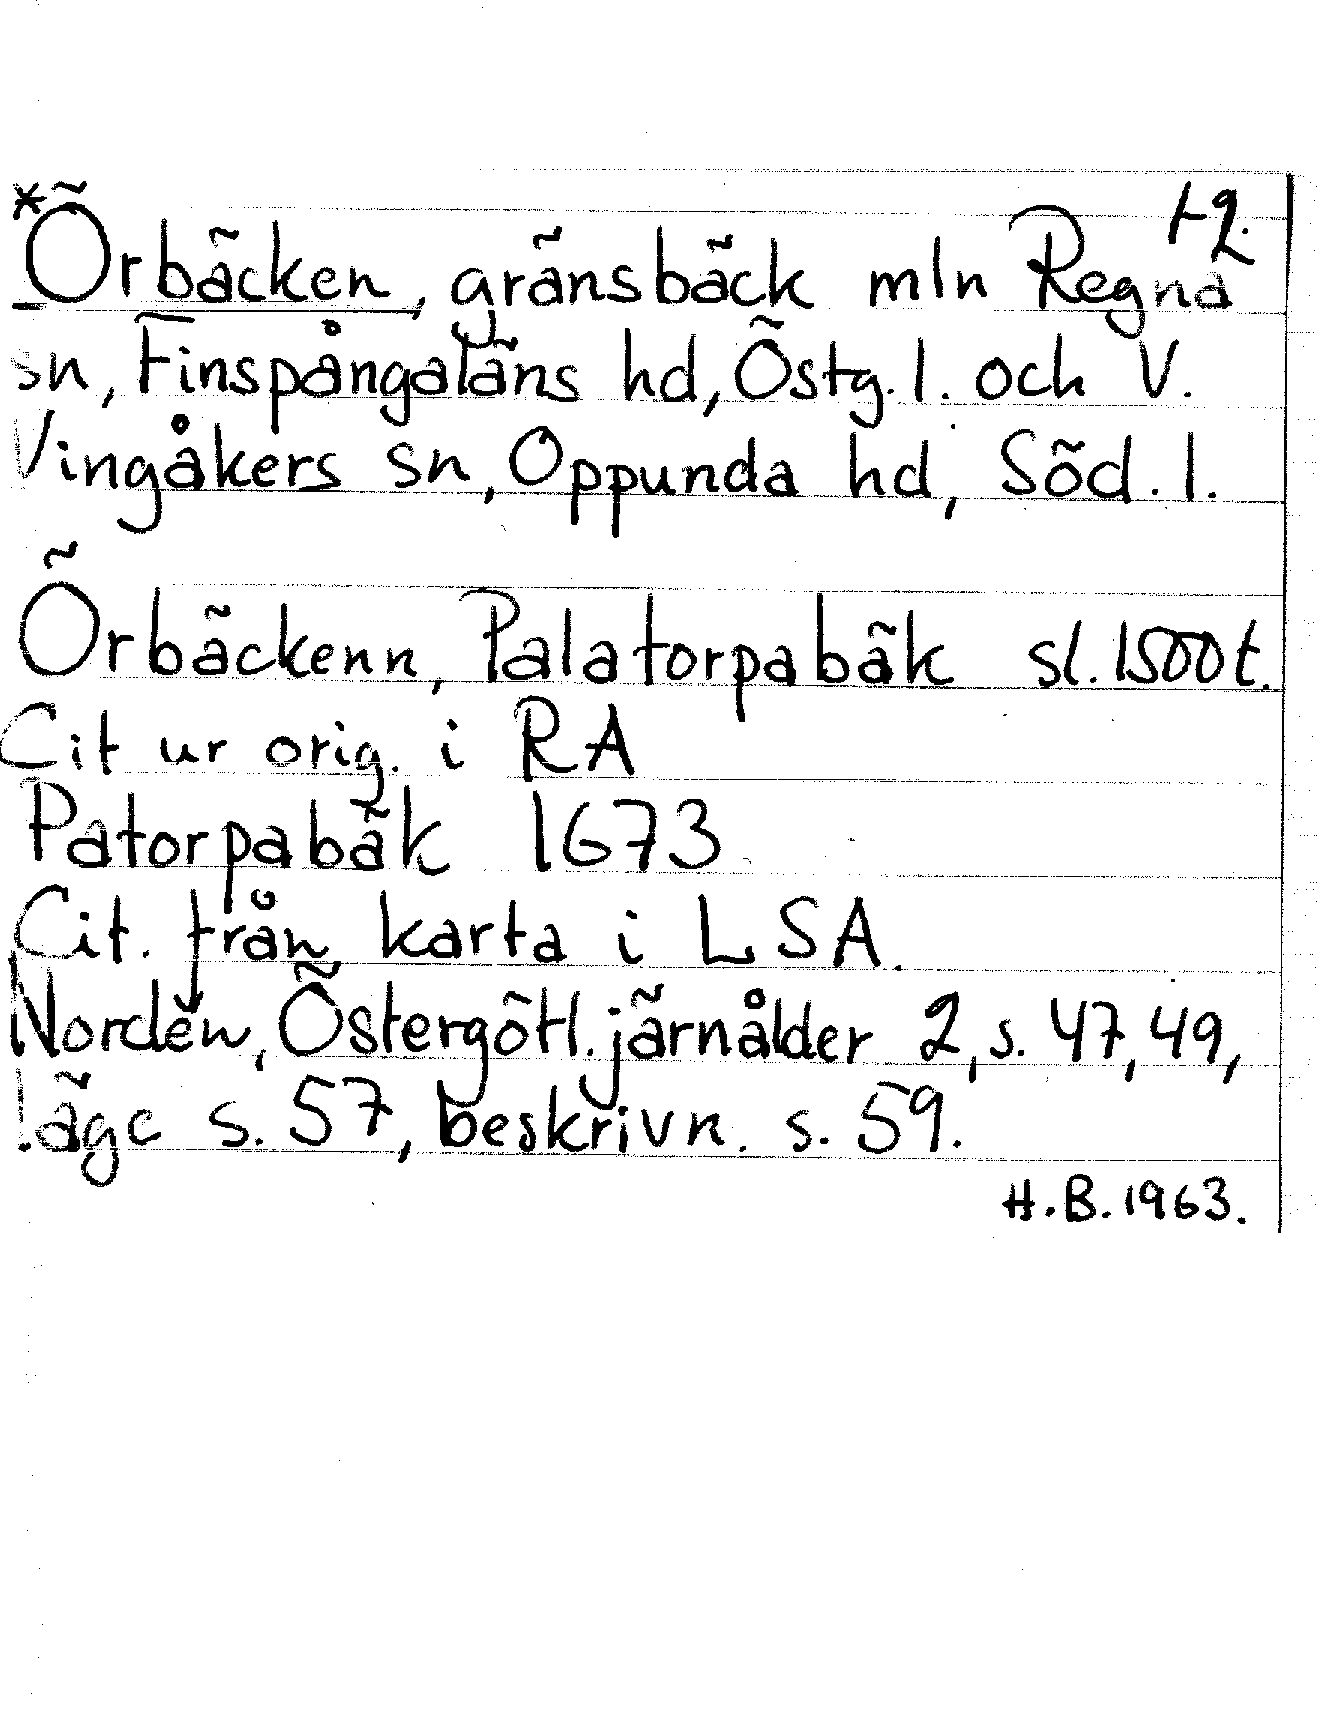 *Örbäcken, gränsbäck mln Regna
sn, Finspångaläns hd, Östg. l. och V.
Vingåkers sn, Oppunda hd, Söd. l.
Örbäckenn, Palatorpabäk sl. 1500 t.
Cit ur orig. i RA
Patorpabäk 1673
Cit. från karta i LSA.
Nordén, Östergötl. järnålder 2, s. 47, 49,
Läge s. 57, beskrivn. s. 59.
H.B. 1963.